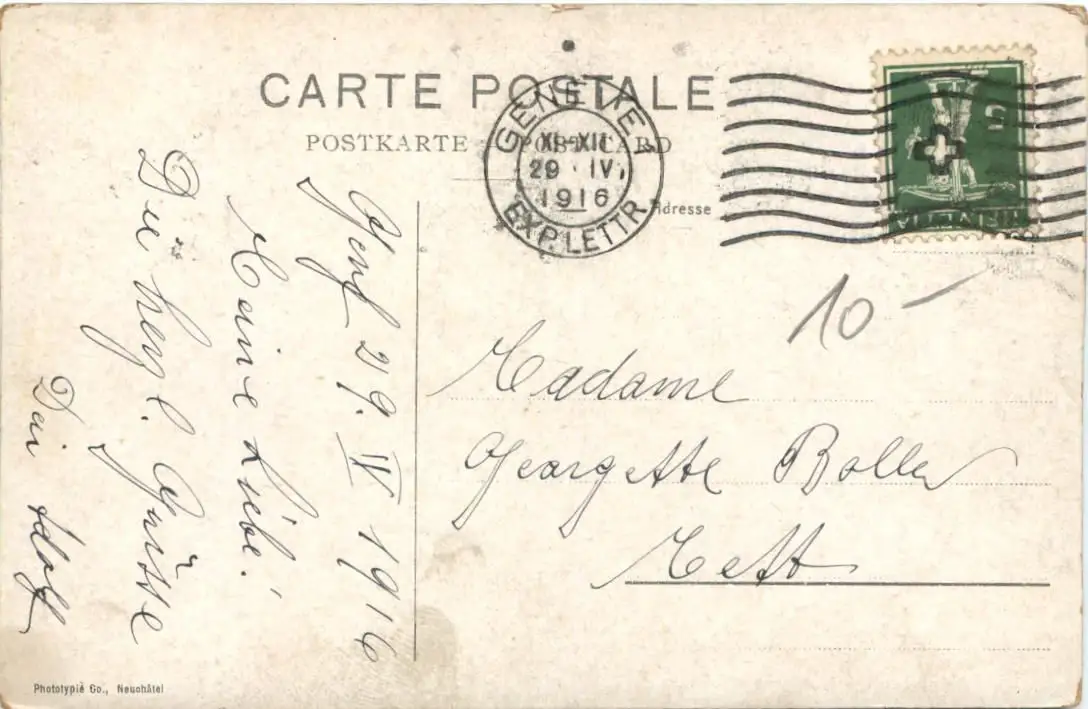 CARTE POSTALE
POSTKARTE - POST-CARD
GENÈVE 1
XI-XII
29 · IV
1916
EXP. LETTR.
5
HELVETIA
Adresse
10 –
Genf 29. IV 1916
Meine Liebe!
Die herzl. Grüsse
Dein Adolf
Madame
Georgette Boller
Mett
Phototypie Co., Neuchâtel